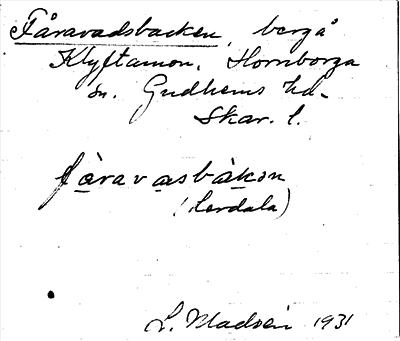 Fåravadsbacken, berg å
Klyftamon, Hornborga
sn. Gudhems hd.
Skar. l.
fàravasbàkən
(Lerdala)
L. Madsén 1931